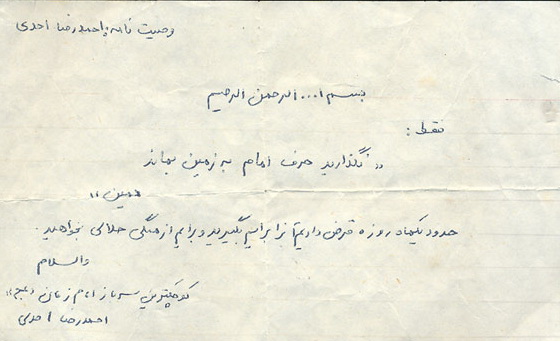 وصیت نامه احمدرضا احدی
بسم ا... الرحمن الرحیم
فقط :
« نگذارید حرف امام به زمین بماند
همین »
حدود یکماه روزه قرض دارم آنرا برایم بگیرید و برایم از همگی حلالی بخواهید .
والسلام
کوچکترین سرباز امام زمان «عج»
احمدرضا احدی